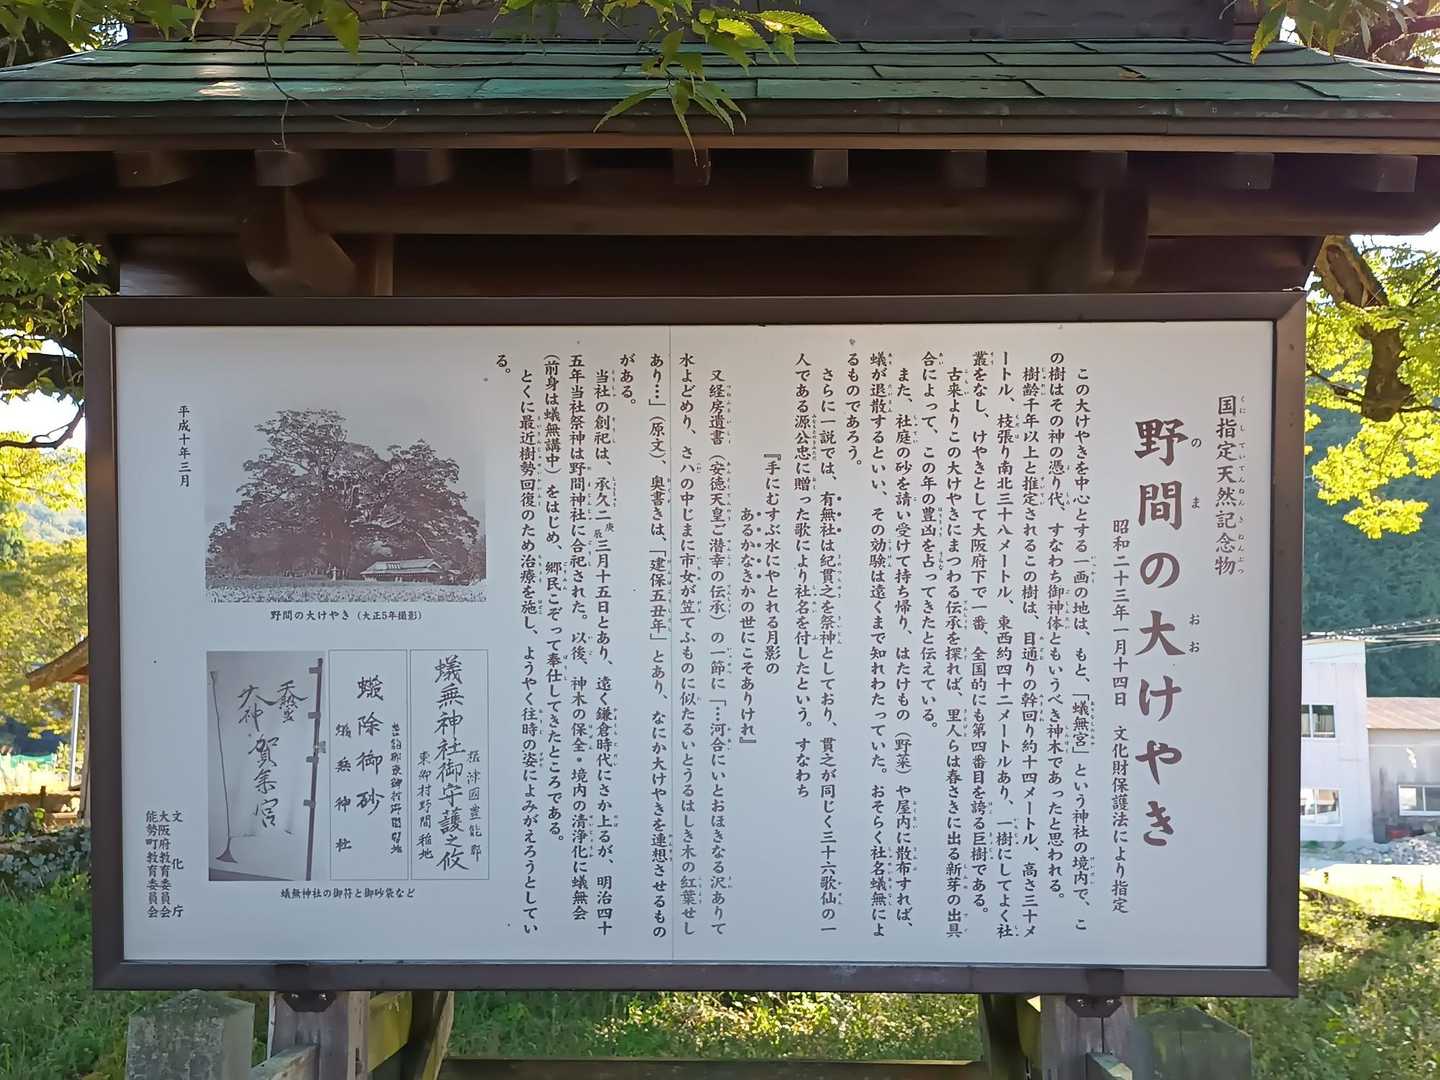 国指定天然記念物
野間の大けやき
昭和二十三年一月十四日 文化財保護法により指定
この大けやきを中心とする一画の地は、もと、「蟻無宮」という神社の境内で、こ
の樹はその神の憑り代、すなわち御神体ともいうべき神木であったと思われる。
樹齢千年以上と推定されるこの樹は、目通りの幹回り約十四メートル、高さ三十メ
ートル、枝張り南北三十八メートル、東西約四十二メートルあり、一樹にしてよく社
叢をなし、けやきとして大阪府下で一番、全国的にも第四番目を誇る巨樹である。
古来よりこの大けやきにまつわる伝承を探れば、里人らは春さきに出る新芽の出具
合によって、この年の豊凶を占ってきたと伝えている。
また、社庭の砂を請い受けて持ち帰り、はたけもの（野菜）や屋内に散布すれば、
蟻が退散するといい、その効験は遠くまで知れわたっていた。おそらく社名蟻無によ
るものであろう。
さらに一説では、有無社は紀貫之を祭神としており、貫之が同じく三十六歌仙の一
人である源公忠に贈った歌により社名を付したという。すなわち
『手にむすぶ水にやとれる月影の
あるかなきかの世にこそありけれ』
又経房遺書（安徳天皇ご潜幸の伝承）の一節に「…河合にいとおほきなる沢ありて
水よどめり、さハの中じまに市女が笠てふものに似たるいとうるはしき木の紅葉せし
あり…」（原文）、奥書きは、「建保五丑年」とあり、なにか大けやきを連想させるもの
がある。
当社の創祀は、承久二庚辰三月十五日とあり、遠く鎌倉時代にさか上るが、明治四十
五年当社祭神は野間神社に合祀された。以後、神木の保全・境内の清浄化に蟻無会
（前身は蟻無講中）をはじめ、郷民こぞって奉仕してきたところである。
とくに最近樹勢回復のため治療を施し、ようやく往時の姿によみがえろうとしてい
る。
野間の大けやき（大正5年撮影）
摂津国豊能郡
蟻無神社御守護之攸
東郷村野間稲地
蟻除御砂
蟻無神社
賀集宮
蟻無神社の御符と御砂袋など
平成十年三月
文化庁
大阪府教育委員会
能勢町教育委員会